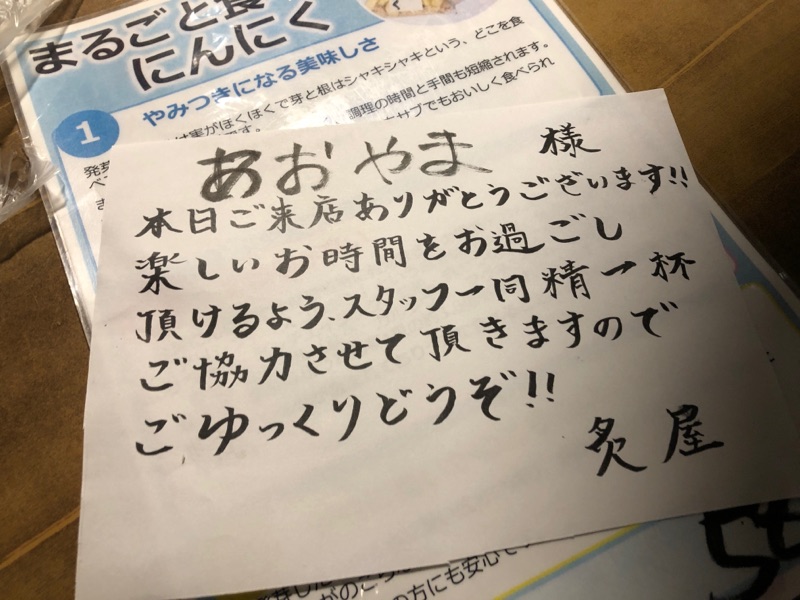 まるごと食
にんにく
1
やみつきになる美味しさ
実がほくほくで芽と根はシャキシャキという、どこを食
調理の時間と手間も短縮されます。
サブでもおいしく食べられ
あおやま 様
本日ご来店ありがとうございます!!
楽しいお時間をお過ごし
頂けるよう、スタッフ一同精一杯
ご協力させて頂きますので
ごゆっくりどうぞ!!
炙屋
の方にも安心